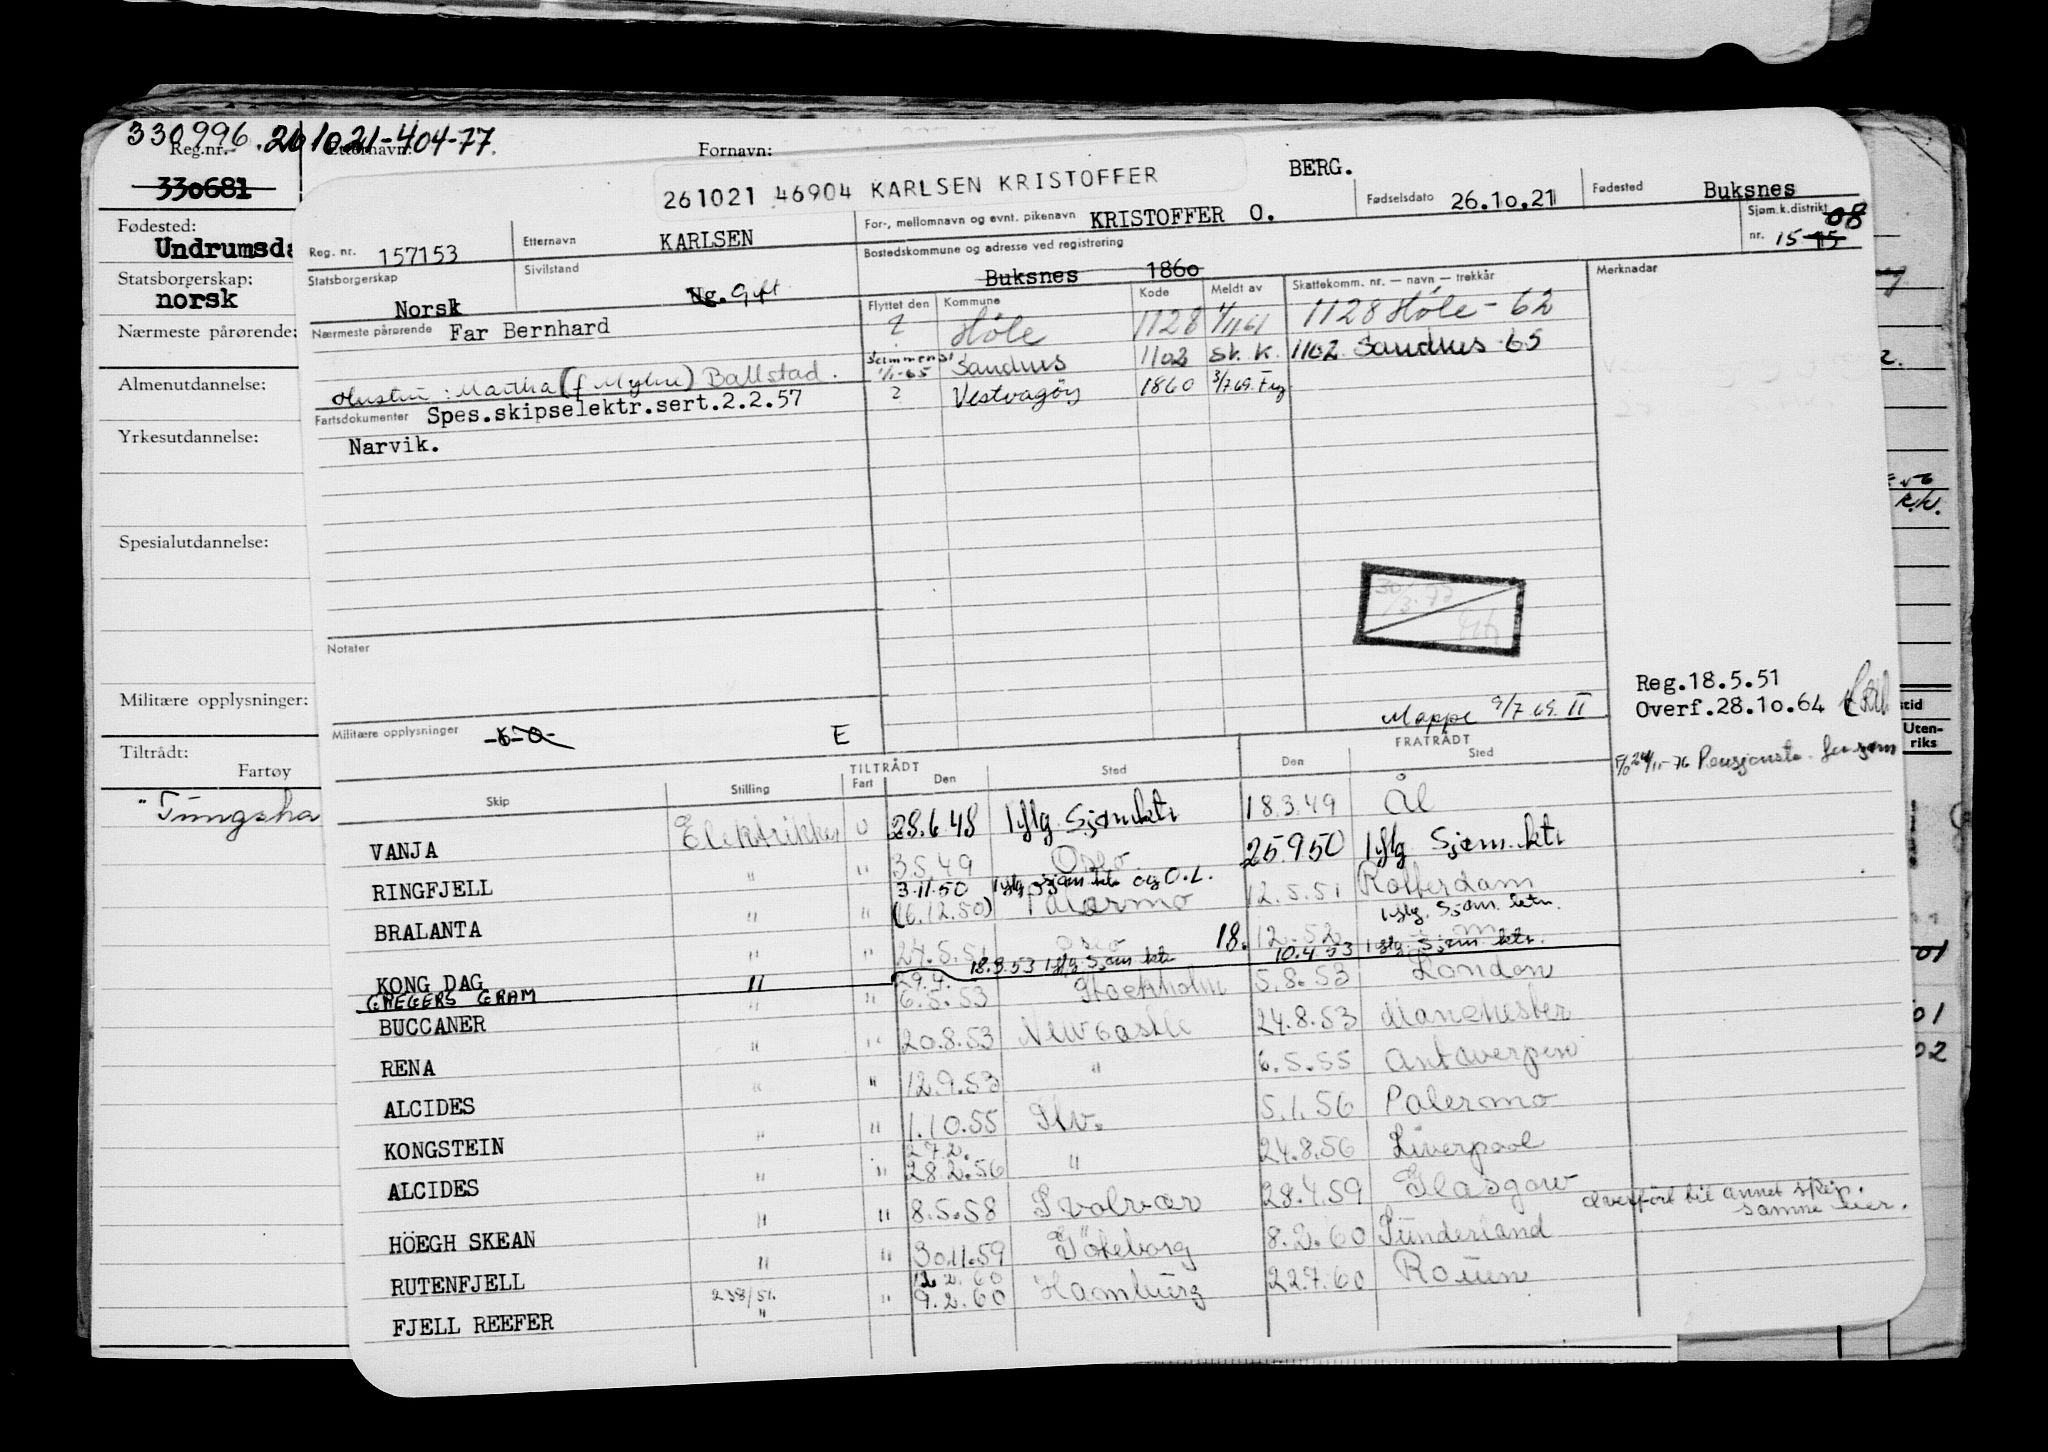 330996. 261021-404-77.
Reg.nr. Etternavn: Fornavn:
330681
Fødested:
Undrumsda
Statsborgerskap:
norsk
Nærmeste pårørende:
Almenutdannelse:
Yrkesutdannelse:
Spesialutdannelse:
Militære opplysninger:
Tiltrådt:
Fartøy
"Tungsha
261021 46904 KARLSEN KRISTOFFER
BERG.
Reg. nr. 157153 Etternavn KARLSEN For-, mellomnavn og evnt. pikenavn KRISTOFFER O. Fødselsdato 26.10.21 Fødested Buksnes
Statsborgerskap Norsk Sivilstand Ug. Gift Bostedskommune og adresse ved registrering Buksnes 1860 Sjøm.k.distrikt nr. 15 15 08
Nærmeste pårørende Far Bernhard
Hustru: Martha (f Myhre) Ballstad.
Fartsdokumenter Spes.skipselektr.sert.2.2.57
Narvik.
Flyttet den Kommune Kode Meldt av Skattekomm. nr. — navn — trekkår Merknader
? Höle 1128 1/11 61 1128 Höle - 62
1/1-65 Sandnes 1102 Sk. K. 1102 Sandnes 65
? Vestvagöy 1860 3/7 69.
Notater
Mappe 9/7 69. II
Reg.18.5.51
Overf.28.10.64
Militære opplysninger E
TILTRÅDT FRATRÅDT
Skip Stilling Fart Den Sted Den Sted
VANJA Elektriker U 28.6.48 Iflg Sjømktr 18.3.49 Ål
RINGFJELL " " 3.5.49 Oslo 25.9.50 Iflg Sjøm.ktr
3.11.50 Iflg Sjøm ktr og O.L.
BRALANTA " " (6.12.50) Palermo 12.5.51 Rotterdam
Iflg. Sjøm. ktr.
KONG DAG " " 24.5.51 Oslo 18.12.52
GREGERS GRAM " 18.3.53 Iflg Sjøm ktr 10.4.53 Iflg. Sjøm. ktr.
29.4.
BUCCANER " " 6.5.53 Stockholm 5.8.53 London
RENA " " 20.8.53 Newcastle 24.8.53 Manchester
ALCIDES " " 12.9.53 " 6.5.55 Antwerpen
KONGSTEIN " " 1.10.55 Slv. 5.1.56 Palermo
27.2.
ALCIDES " " 28.2.56 " 24.8.56 Liverpool
HÖEGH SKEAN " " 8.5.58 Svolvær 28.4.59 Glasgow
overfört til annet skip.
samme eier.
RUTENFJELL " " 30.11.59 Göteborg 8.2.60 Sunderland
12.2.60
FJELL REEFER " " 9.2.60 Hamburg 22.7.60 Rouen
238/51.
Uten-
riks
01
01
02